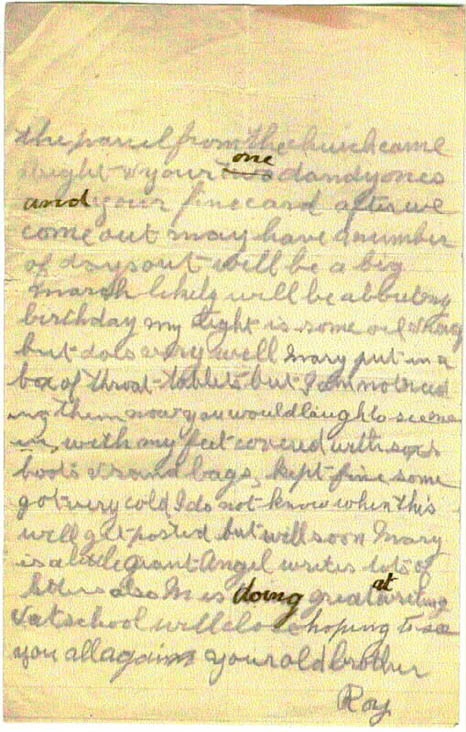 the parcel from the church came
alright & your one dandy ones
and your fine card after we
come out may have a number
of days out will be a big
march likely will be about my
birthday my light is some oil & rag
but does very well Mary put in a
box of throat tablets but I am not need
ing them now you would laugh to see me
in, with my feet covered with sox
boots & sand bags, kept fine some
got very cold I do not know when this
will get posted but will soon Mary
is a little giant Angel writes lots of
letters also M is doing great at writing
& at school will close hoping to see
you all again your old brother
Roy